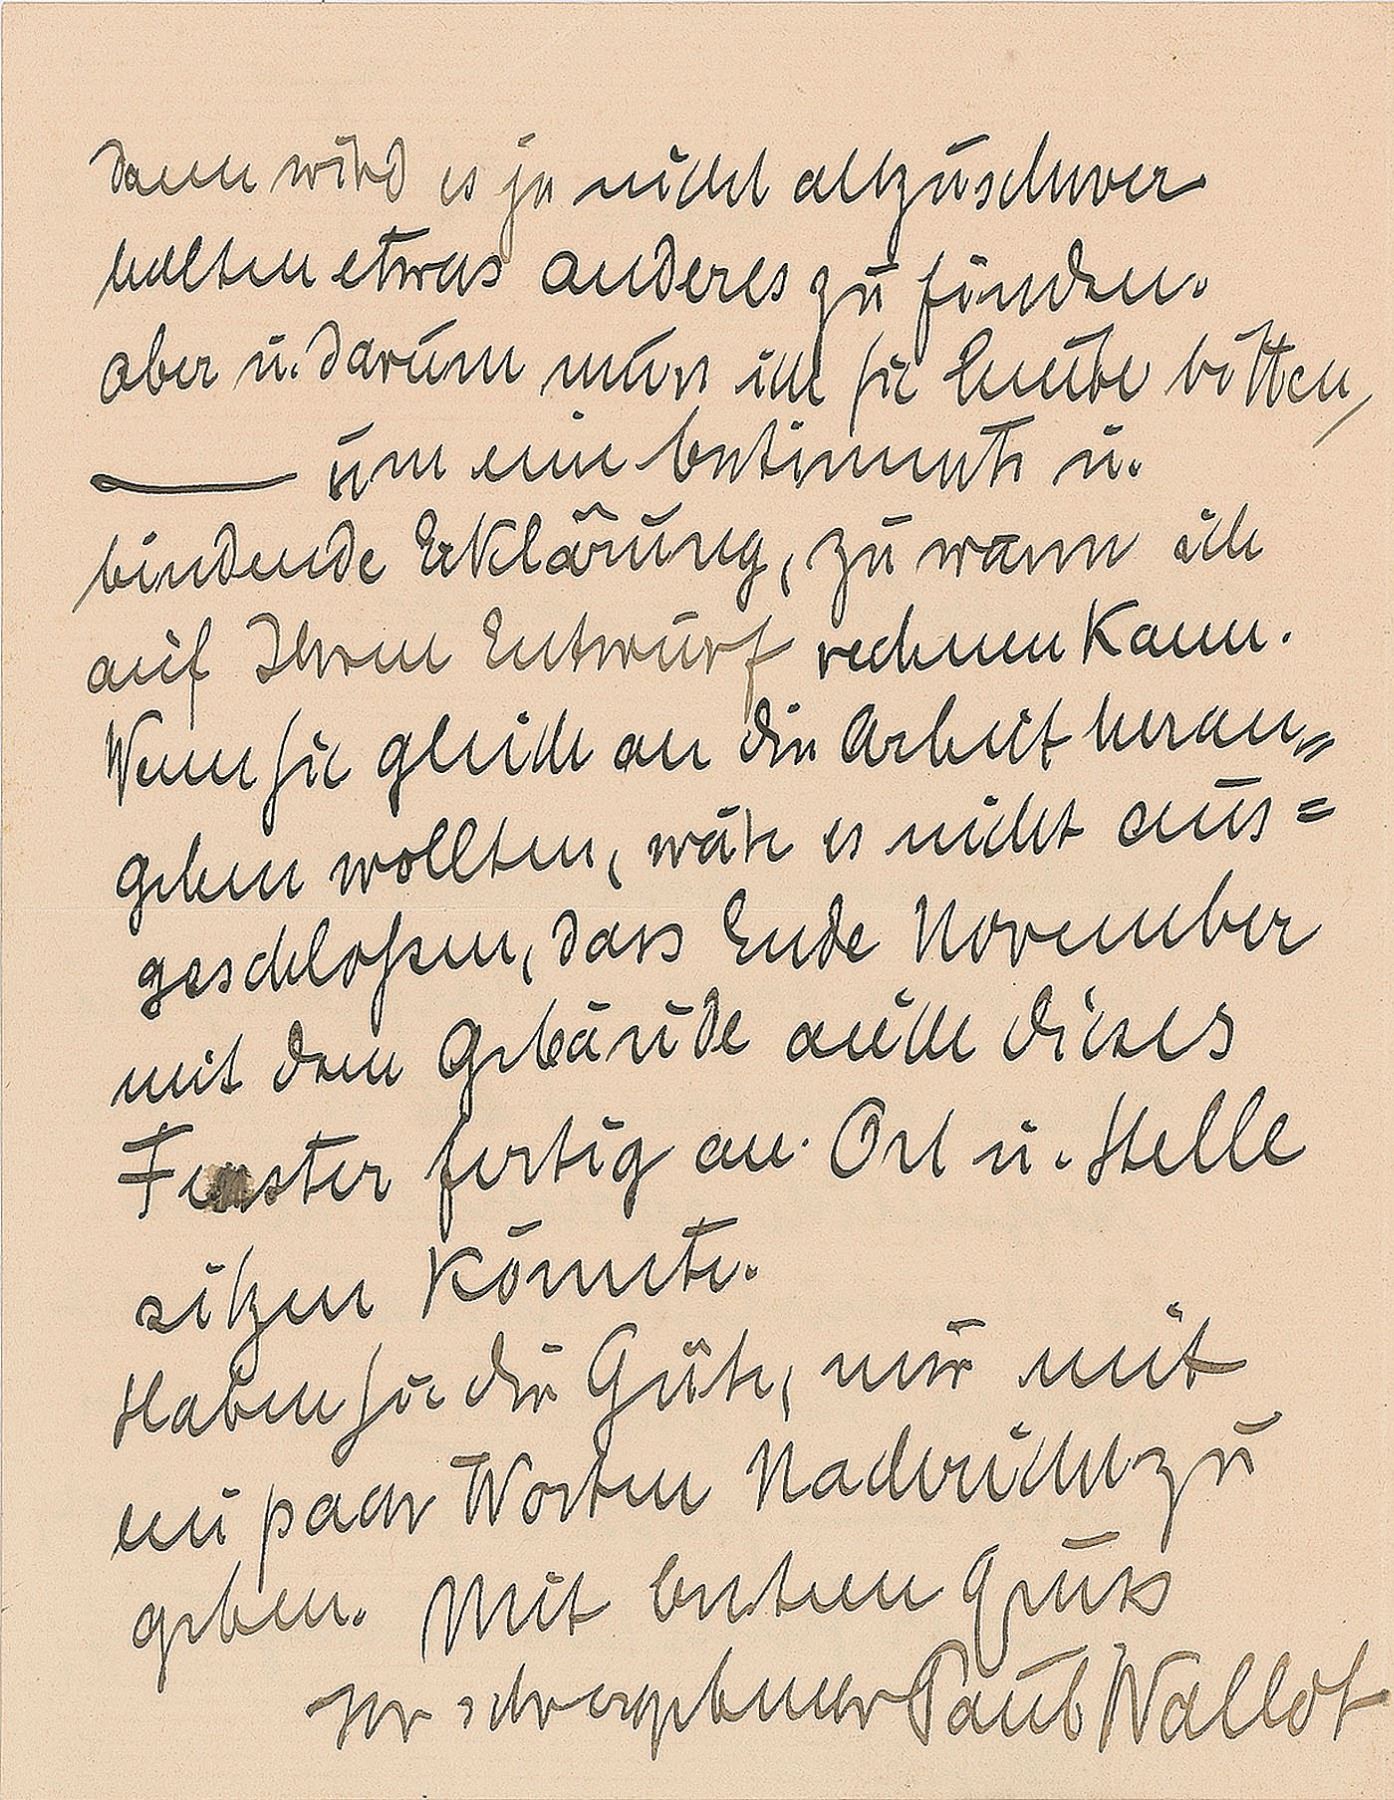 dann wird es ja nicht allzuschwer
halten etwas anderes zu finden.
aber u. darum muss ich sie heute bitten,
— um eine bestimmte u.
bindende Erklärung, zu wann ich
auf Ihren Entwurf rechnen kann.
Wenn sie gleich an die Arbeit heran=
gehen wollten, wäre es nicht aus=
geschlossen, dass Ende November
mit dem Gebäude auch dieses
Fenster fertig an Ort u. Stelle
sitzen könnte.
Haben sie die Güte, mir mit
ein paar Worten Nachricht zu
geben. Mit bestem Gruss
Ihr sehr ergebener Paul Wallot